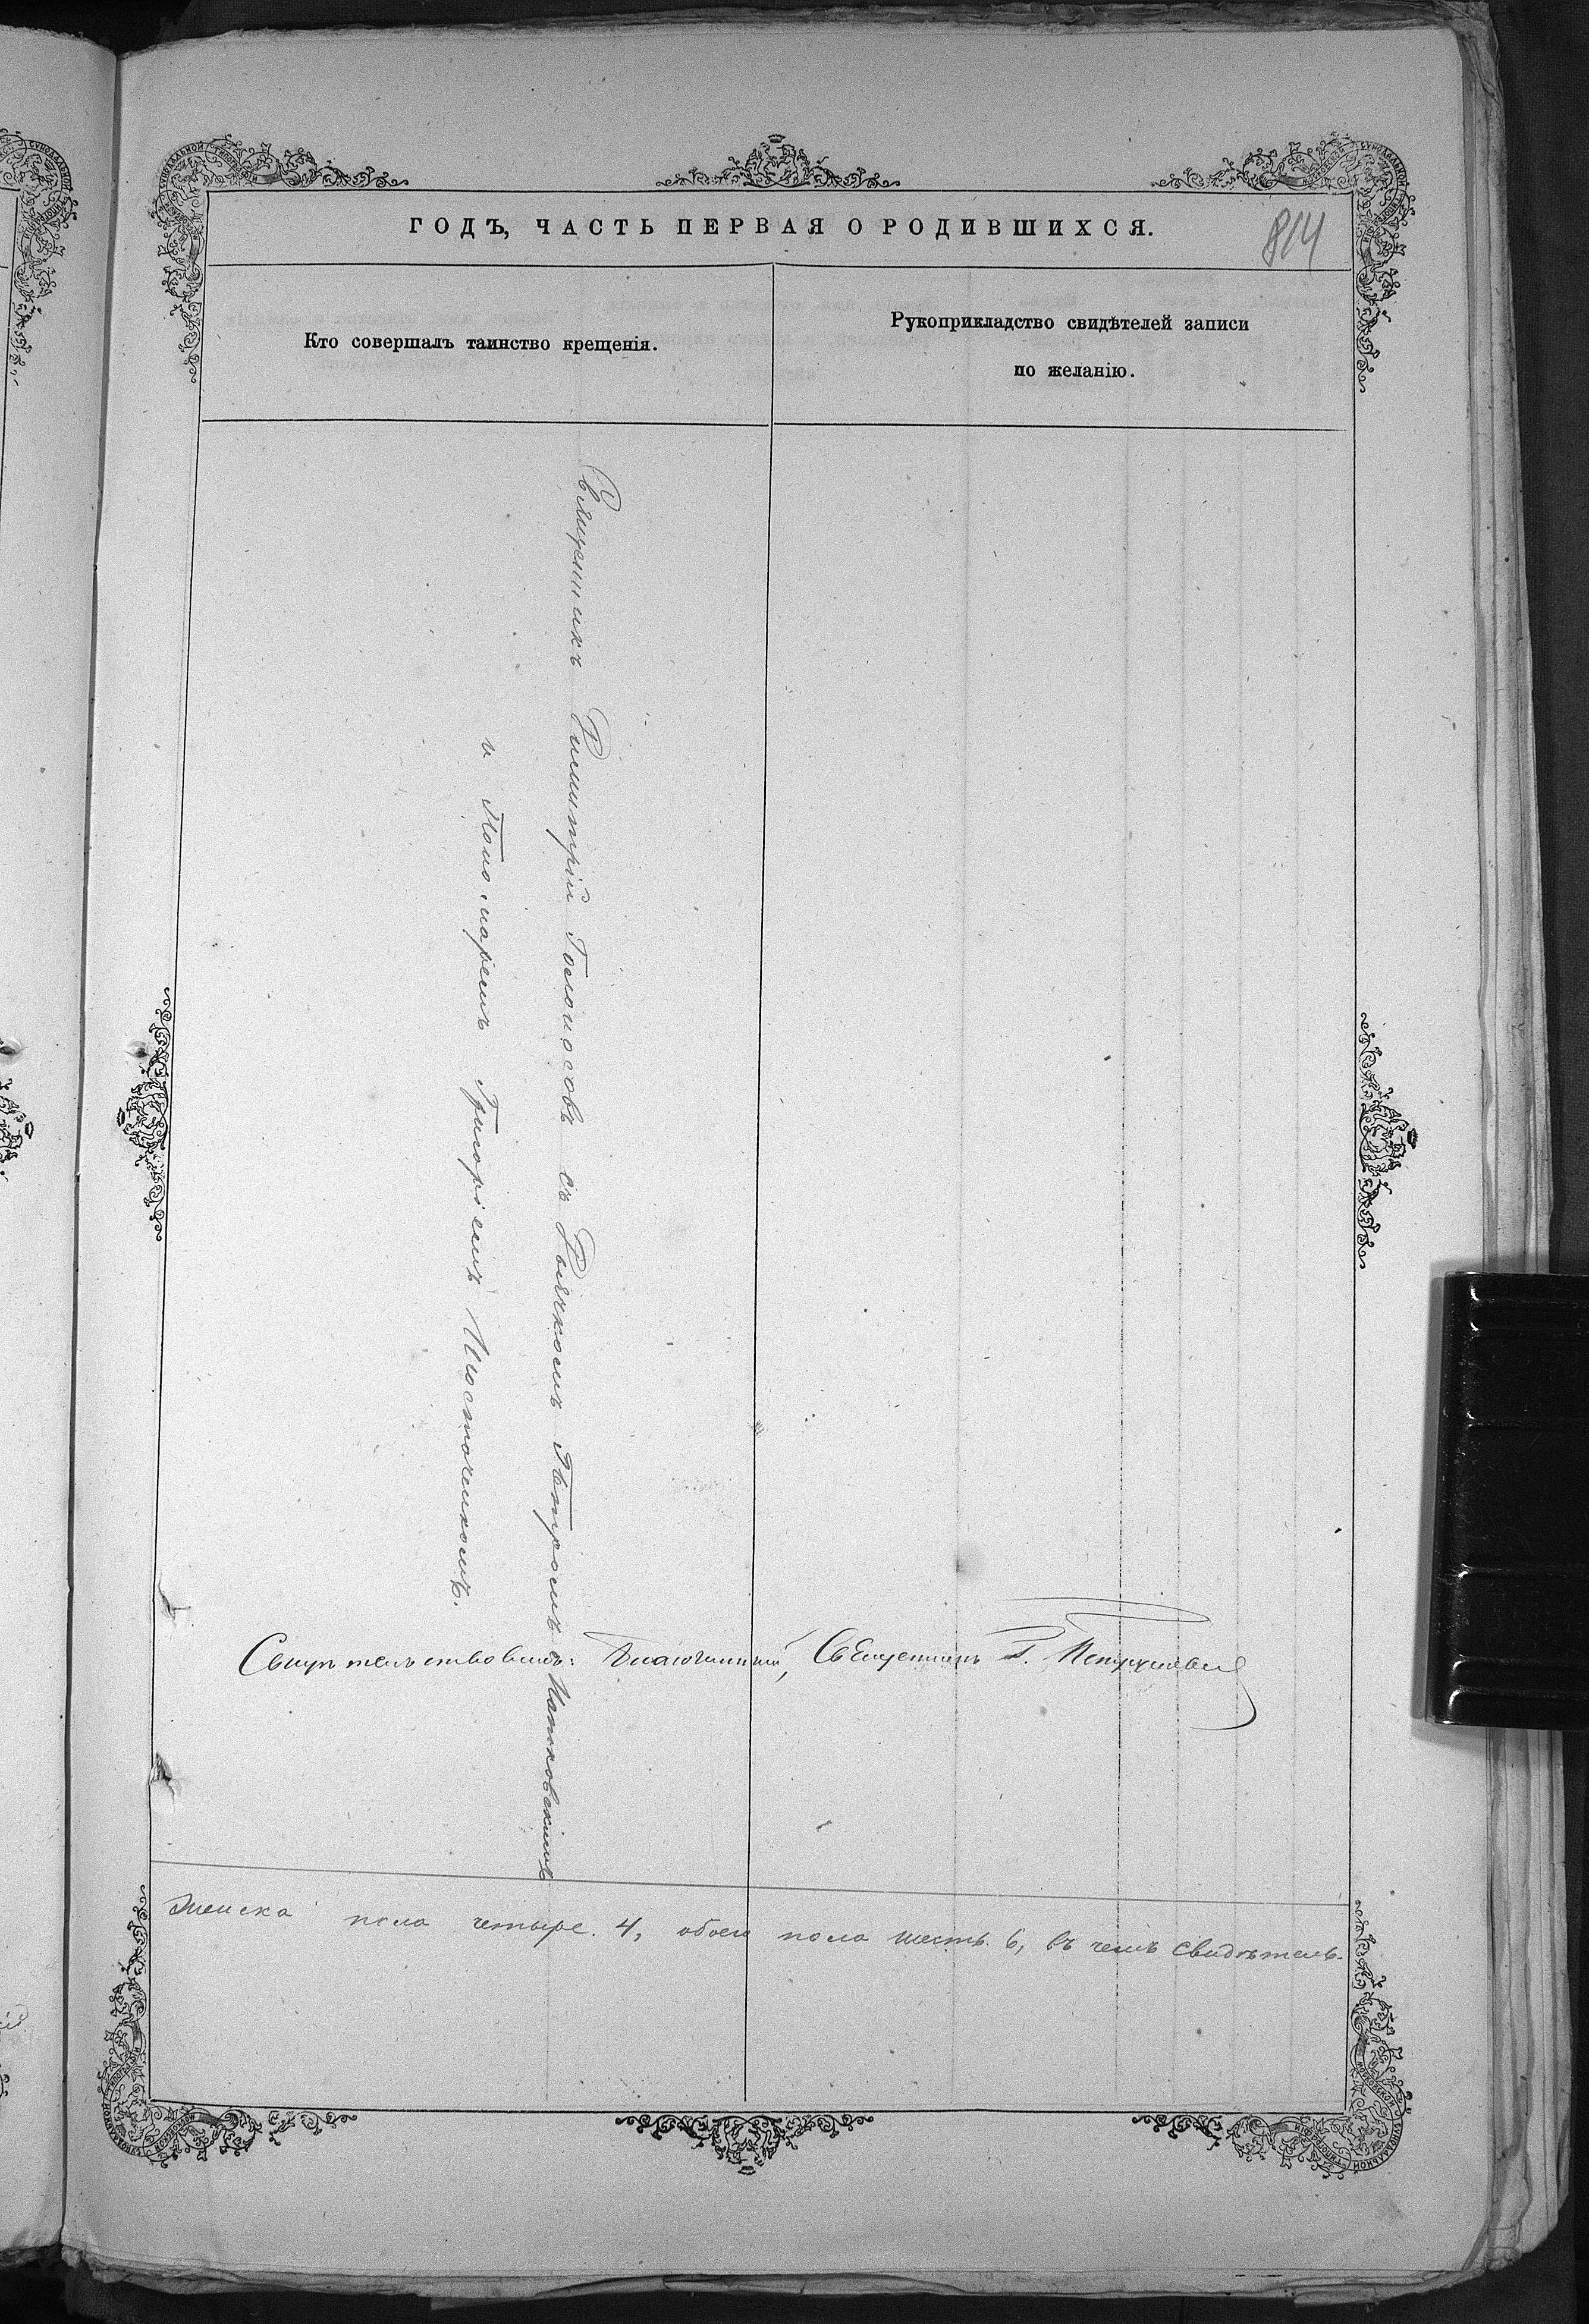 ГОДЪ, ЧАСТЬ ПЕРВАЯ О РОДИВШИХСЯ.
814
Кто совершалъ таинство крещенія.
Рукоприкладство свидѣтелей записи
по желанію.
Священникъ Димитрій Голоносовъ съ Дьячкомъ Петромъ
и Пономаремъ Григоріемъ
Благочинный, Священникъ
женска пола четыре. 4, обоего пола шесть. 6, въ чемъ свидѣтель-